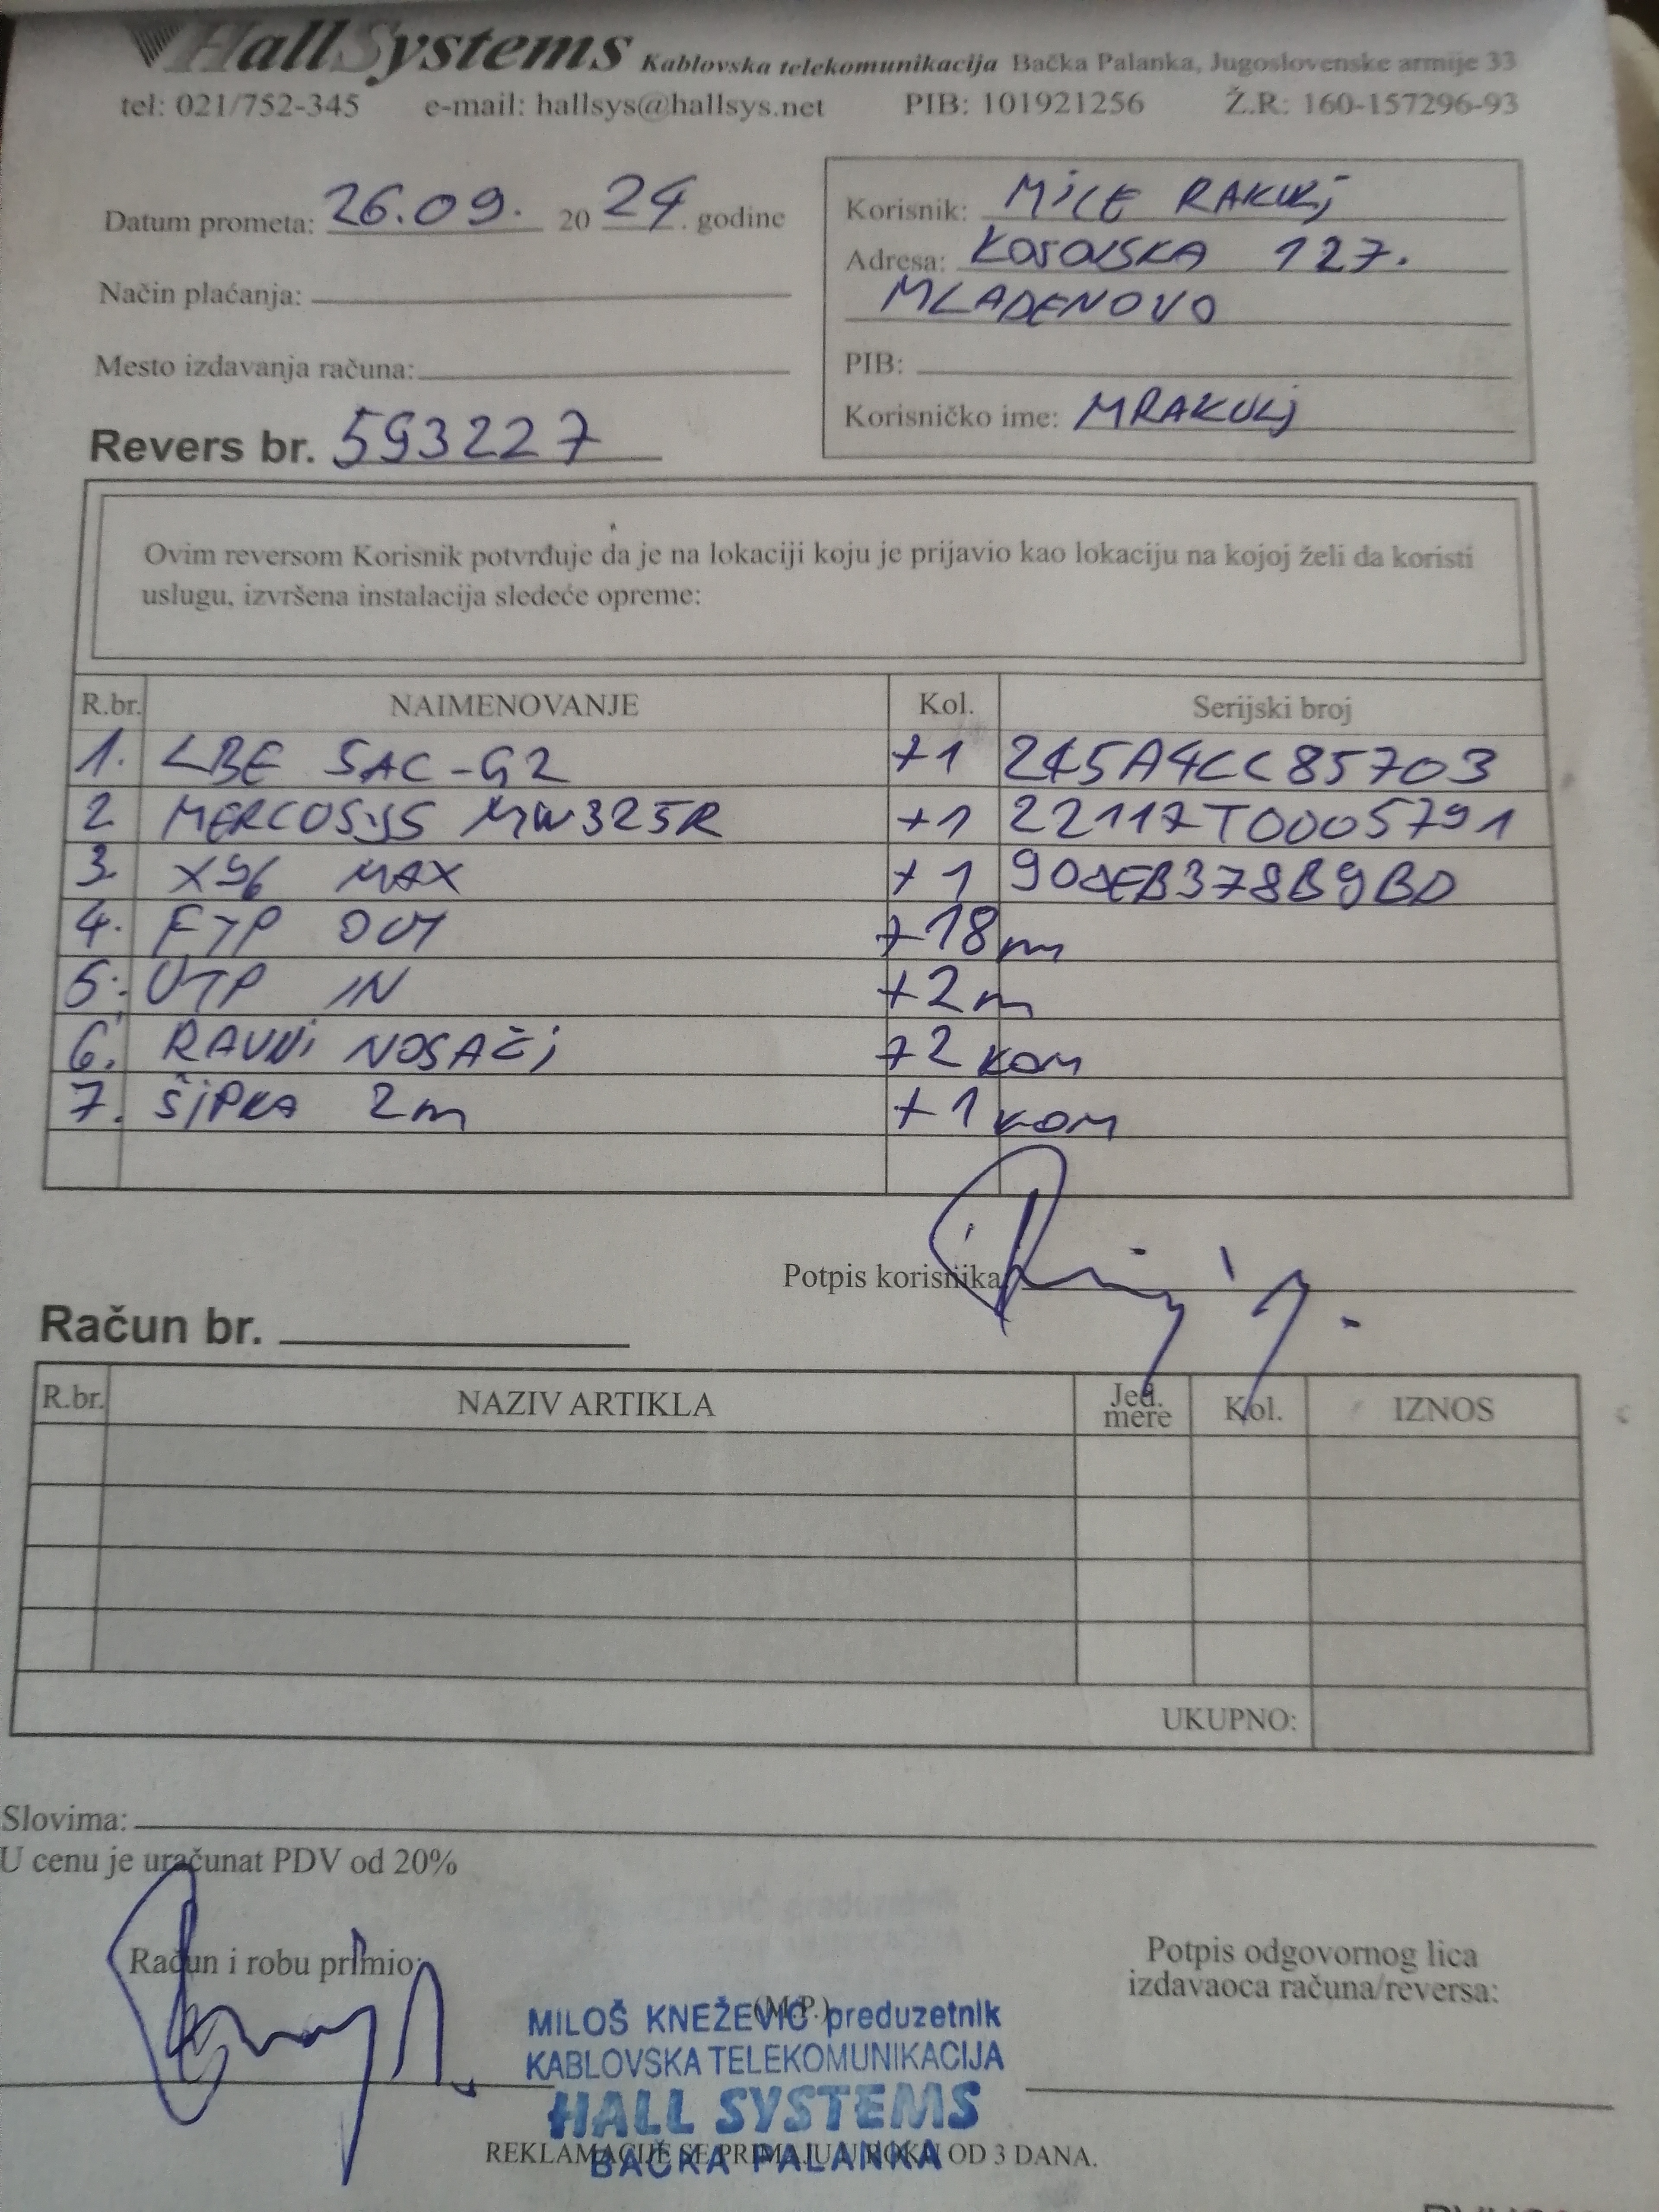 HallSystems Kablovska telekomunikacija Bačka Palanka, Jugoslovenske armije 33
tel: 021/752-345 e-mail: hallsys@hallsys.net PIB: 101921256 Ž.R: 160-157296-93
Datum prometa: 26.09. 2024. godine
Način plaćanja:
Mesto izdavanja računa:
Revers br. 593227
Korisnik: MiCE RAKULj
Adresa: KOSOVSKA 127.
MLADENOVO
PIB:
Korisničko ime: MRAKULj
Ovim reversom Korisnik potvrđuje da je na lokaciji koju je prijavio kao lokaciju na kojoj želi da koristi
uslugu, izvršena instalacija sledeće opreme:
R.br. NAIMENOVANJE Kol. Serijski broj
1. LBE 5AC-G2 +1 245A4CC85703
2 MERCOSYS MW325R +1 22117T0005791
3. X96 MAX +1 90DEB378B9BD
4. FTP OUT +18m
5. UTP IN +2m
6. RAVNi NOSAČi +2 KOM
7. ŠiPKA 2m +1 KOM
Potpis korisnika
Račun br.
R.br. NAZIV ARTIKLA Jed. mere Kol. IZNOS
UKUPNO:
Slovima:
U cenu je uračunat PDV od 20%
Račun i robu primio:
(M.P.)
Potpis odgovornog lica
izdavaoca računa/reversa:
MILOŠ KNEŽEVIĆ preduzetnik
KABLOVSKA TELEKOMUNIKACIJA
HALL SYSTEMS
BAČKA PALANKA
REKLAMACIJE SE PRIMAJU U ROKU OD 3 DANA.